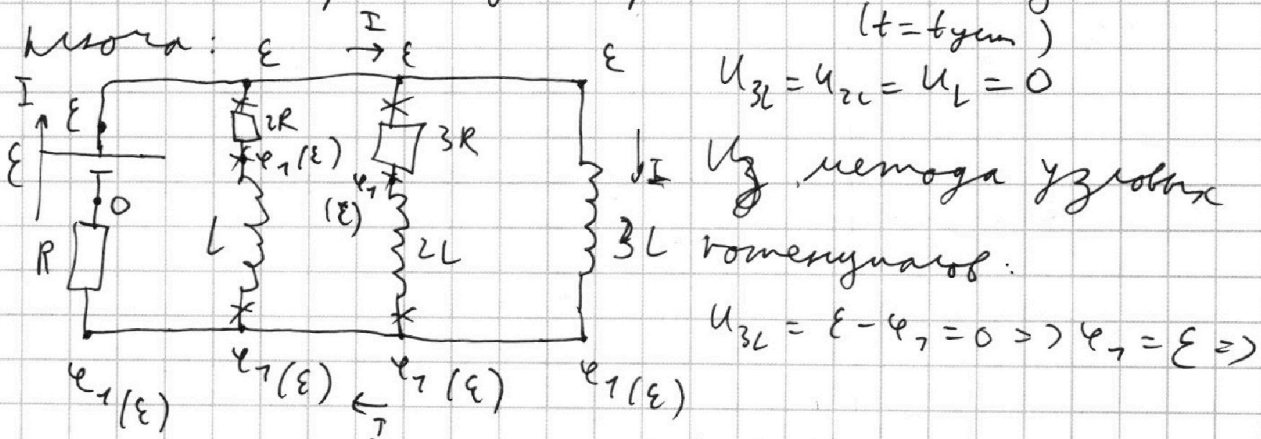 ключа:
(t = tуст)
I
ε
ε
ε
U₃L = U₂L = U_L = 0
I
ε
ε
2R
φ₁(ε)
3R
φ₁
(ε)
0
R
L
2L
I
3L
Из метода узловых
потенциалов:
U₃L = ε - φ₁ = 0 => φ₁ = ε =>
φ₁(ε)
φ₁(ε)
φ₁(ε)
φ₁(ε)
I